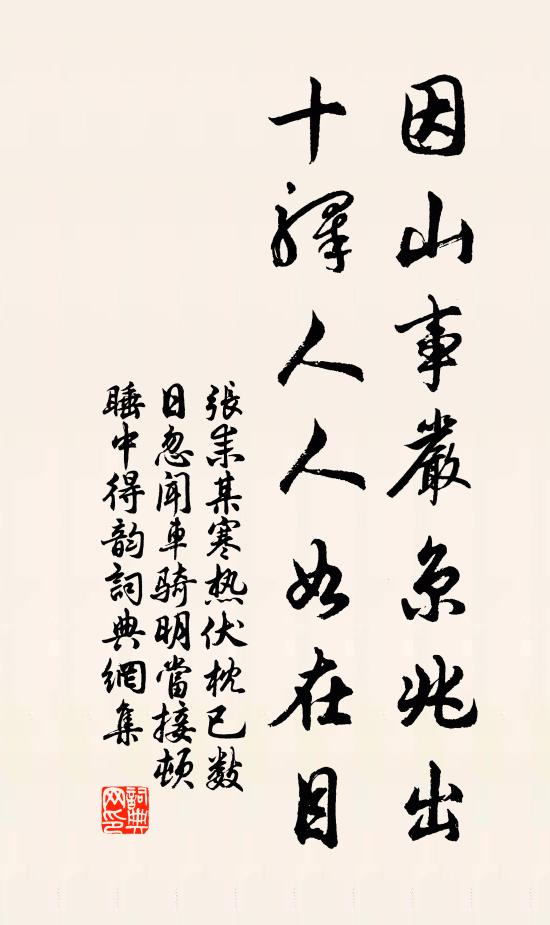 因山事嚴京兆出
十驛人人如在目
張耒某寒热伏枕已數
日忽闻車骑明當接頓
睡中得韵詞典網集
詞典
网印